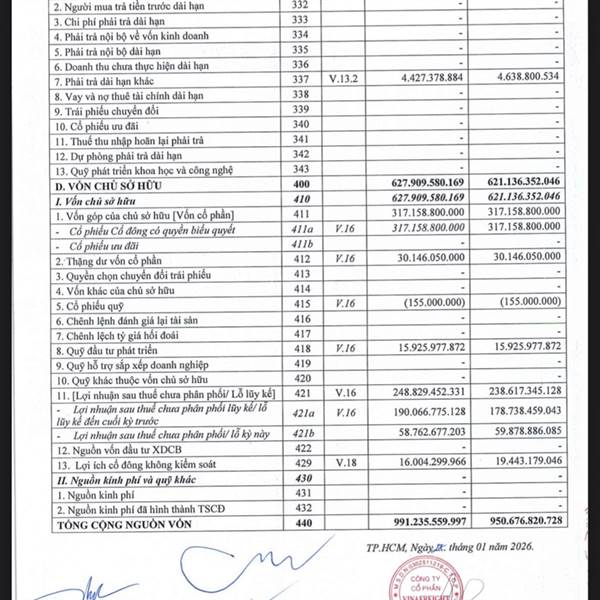 2. Người mua trả tiền trước dài hạn 332 - -
3. Chi phí phải trả dài hạn 333 - -
4. Phải trả nội bộ về vốn kinh doanh 334 - -
5. Phải trả nội bộ dài hạn 335 - -
6. Doanh thu chưa thực hiện dài hạn 336 - -
7. Phải trả dài hạn khác 337 V.13.2 4.427.378.884 4.638.800.534
8. Vay và nợ thuê tài chính dài hạn 338 - -
9. Trái phiếu chuyển đổi 339 - -
10. Cổ phiếu ưu đãi 340 - -
11. Thuế thu nhập hoãn lại phải trả 341 - -
12. Dự phòng phải trả dài hạn 342 - -
13. Quỹ phát triển khoa học và công nghệ 343 - -
D. VỐN CHỦ SỞ HỮU 400 627.909.580.169 621.136.352.046
I. Vốn chủ sở hữu 410 627.909.580.169 621.136.352.046
1. Vốn góp của chủ sở hữu [Vốn cổ phần] 411 317.158.800.000 317.158.800.000
- Cổ phiếu Cổ đông có quyền biểu quyết 411a V.16 317.158.800.000 317.158.800.000
- Cổ phiếu ưu đãi 411b - -
2. Thặng dư vốn cổ phần 412 V.16 30.146.050.000 30.146.050.000
3. Quyền chọn chuyển đổi trái phiếu 413 - -
4. Vốn khác của chủ sở hữu 414 - -
5. Cổ phiếu quỹ 415 V.16 (155.000.000) (155.000.000)
6. Chênh lệnh đánh giá lại tài sản 416 - -
7. Chênh lệch tỷ giá hối đoái 417 - -
8. Quỹ đầu tư phát triển 418 V.16 15.925.977.872 15.925.977.872
9. Quỹ hỗ trợ sắp xếp doanh nghiệp 419 - -
10. Quỹ khác thuộc vốn chủ sở hữu 420 - -
11. [Lợi nhuận sau thuế chưa phân phối/ Lỗ lũy kế] 421 V.16 248.829.452.331 238.617.345.128
- Lợi nhuận sau thuế chưa phân phối lũy kế/ lỗ
lũy kế đến cuối kỳ trước 421a V.16 190.066.775.128 178.738.459.043
- Lợi nhuận sau thuế chưa phân phối/ lỗ kỳ này 421b 58.762.677.203 59.878.886.085
12. Nguồn vốn đầu tư XDCB 422 - -
13. Lợi ích cổ đông không kiểm soát 429 V.18 16.004.299.966 19.443.179.046
II. Nguồn kinh phí và quỹ khác 430 - -
1. Nguồn kinh phí 431 - -
2. Nguồn kinh phí đã hình thành TSCĐ 432 - -
TỔNG CỘNG NGUỒN VỐN 440 991.235.559.997 950.676.820.728
TP.HCM, Ngày tháng 01 năm 2026.
CÔNG TY
CỔ PHẦN
VINAFREIGHT